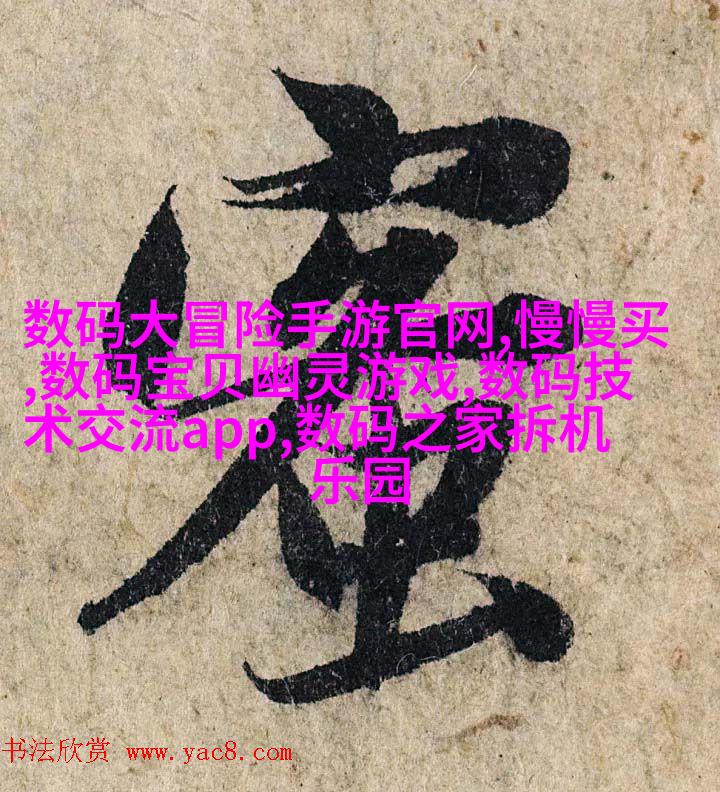 数码大冒险手游官网,慢慢买
,数码宝贝幽灵游戏,数码技
术交流app,数码之家拆机
乐园
书法欣赏 www.yac8.com